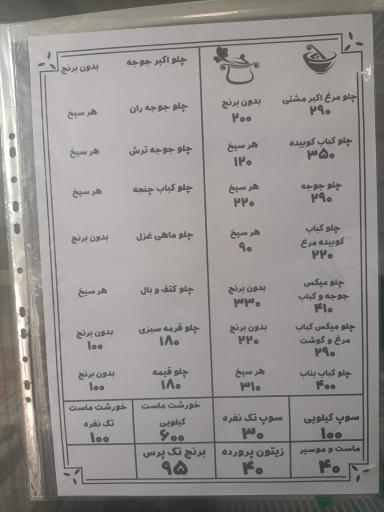 چلو مرغ اکبر مشتی
۲۹۰
بدون برنج
۲۰۰
چلو کباب کوبیده
۳۵۰
هر سیخ
۱۲۰
چلو جوجه
۲۹۰
هر سیخ
۲۲۰
چلو کباب
کوبیده مرغ
۲۲۰
هر سیخ
۹۰
چلو میکس
جوجه و کباب
۴۱۰
بدون برنج
۳۳۰
چلو میکس کباب
مرغ و گوشت
۲۹۰
بدون برنج
۲۲۰
چلو کباب بناب
۴۰۰
هر سیخ
۳۱۰
چلو اکبر جوجه
بدون برنج
چلو جوجه ران
هر سیخ
چلو جوجه ترش
هر سیخ
چلو کباب چنجه
هر سیخ
چلو ماهی غزل
بدون برنج
چلو کتف و بال
هر سیخ
چلو قرمه سبزی
۱۸۰
بدون برنج
۱۰۰
چلو قیمه
۱۸۰
بدون برنج
۱۰۰
سوپ کیلویی
۱۰۰
سوپ تک نفره
۳۰
خورشت ماست
کیلویی
۶۰۰
خورشت ماست
تک نفره
۱۰۰
ماست و موسیر
۴۰
زیتون پرورده
۴۰
برنج تک پرس
۹۵